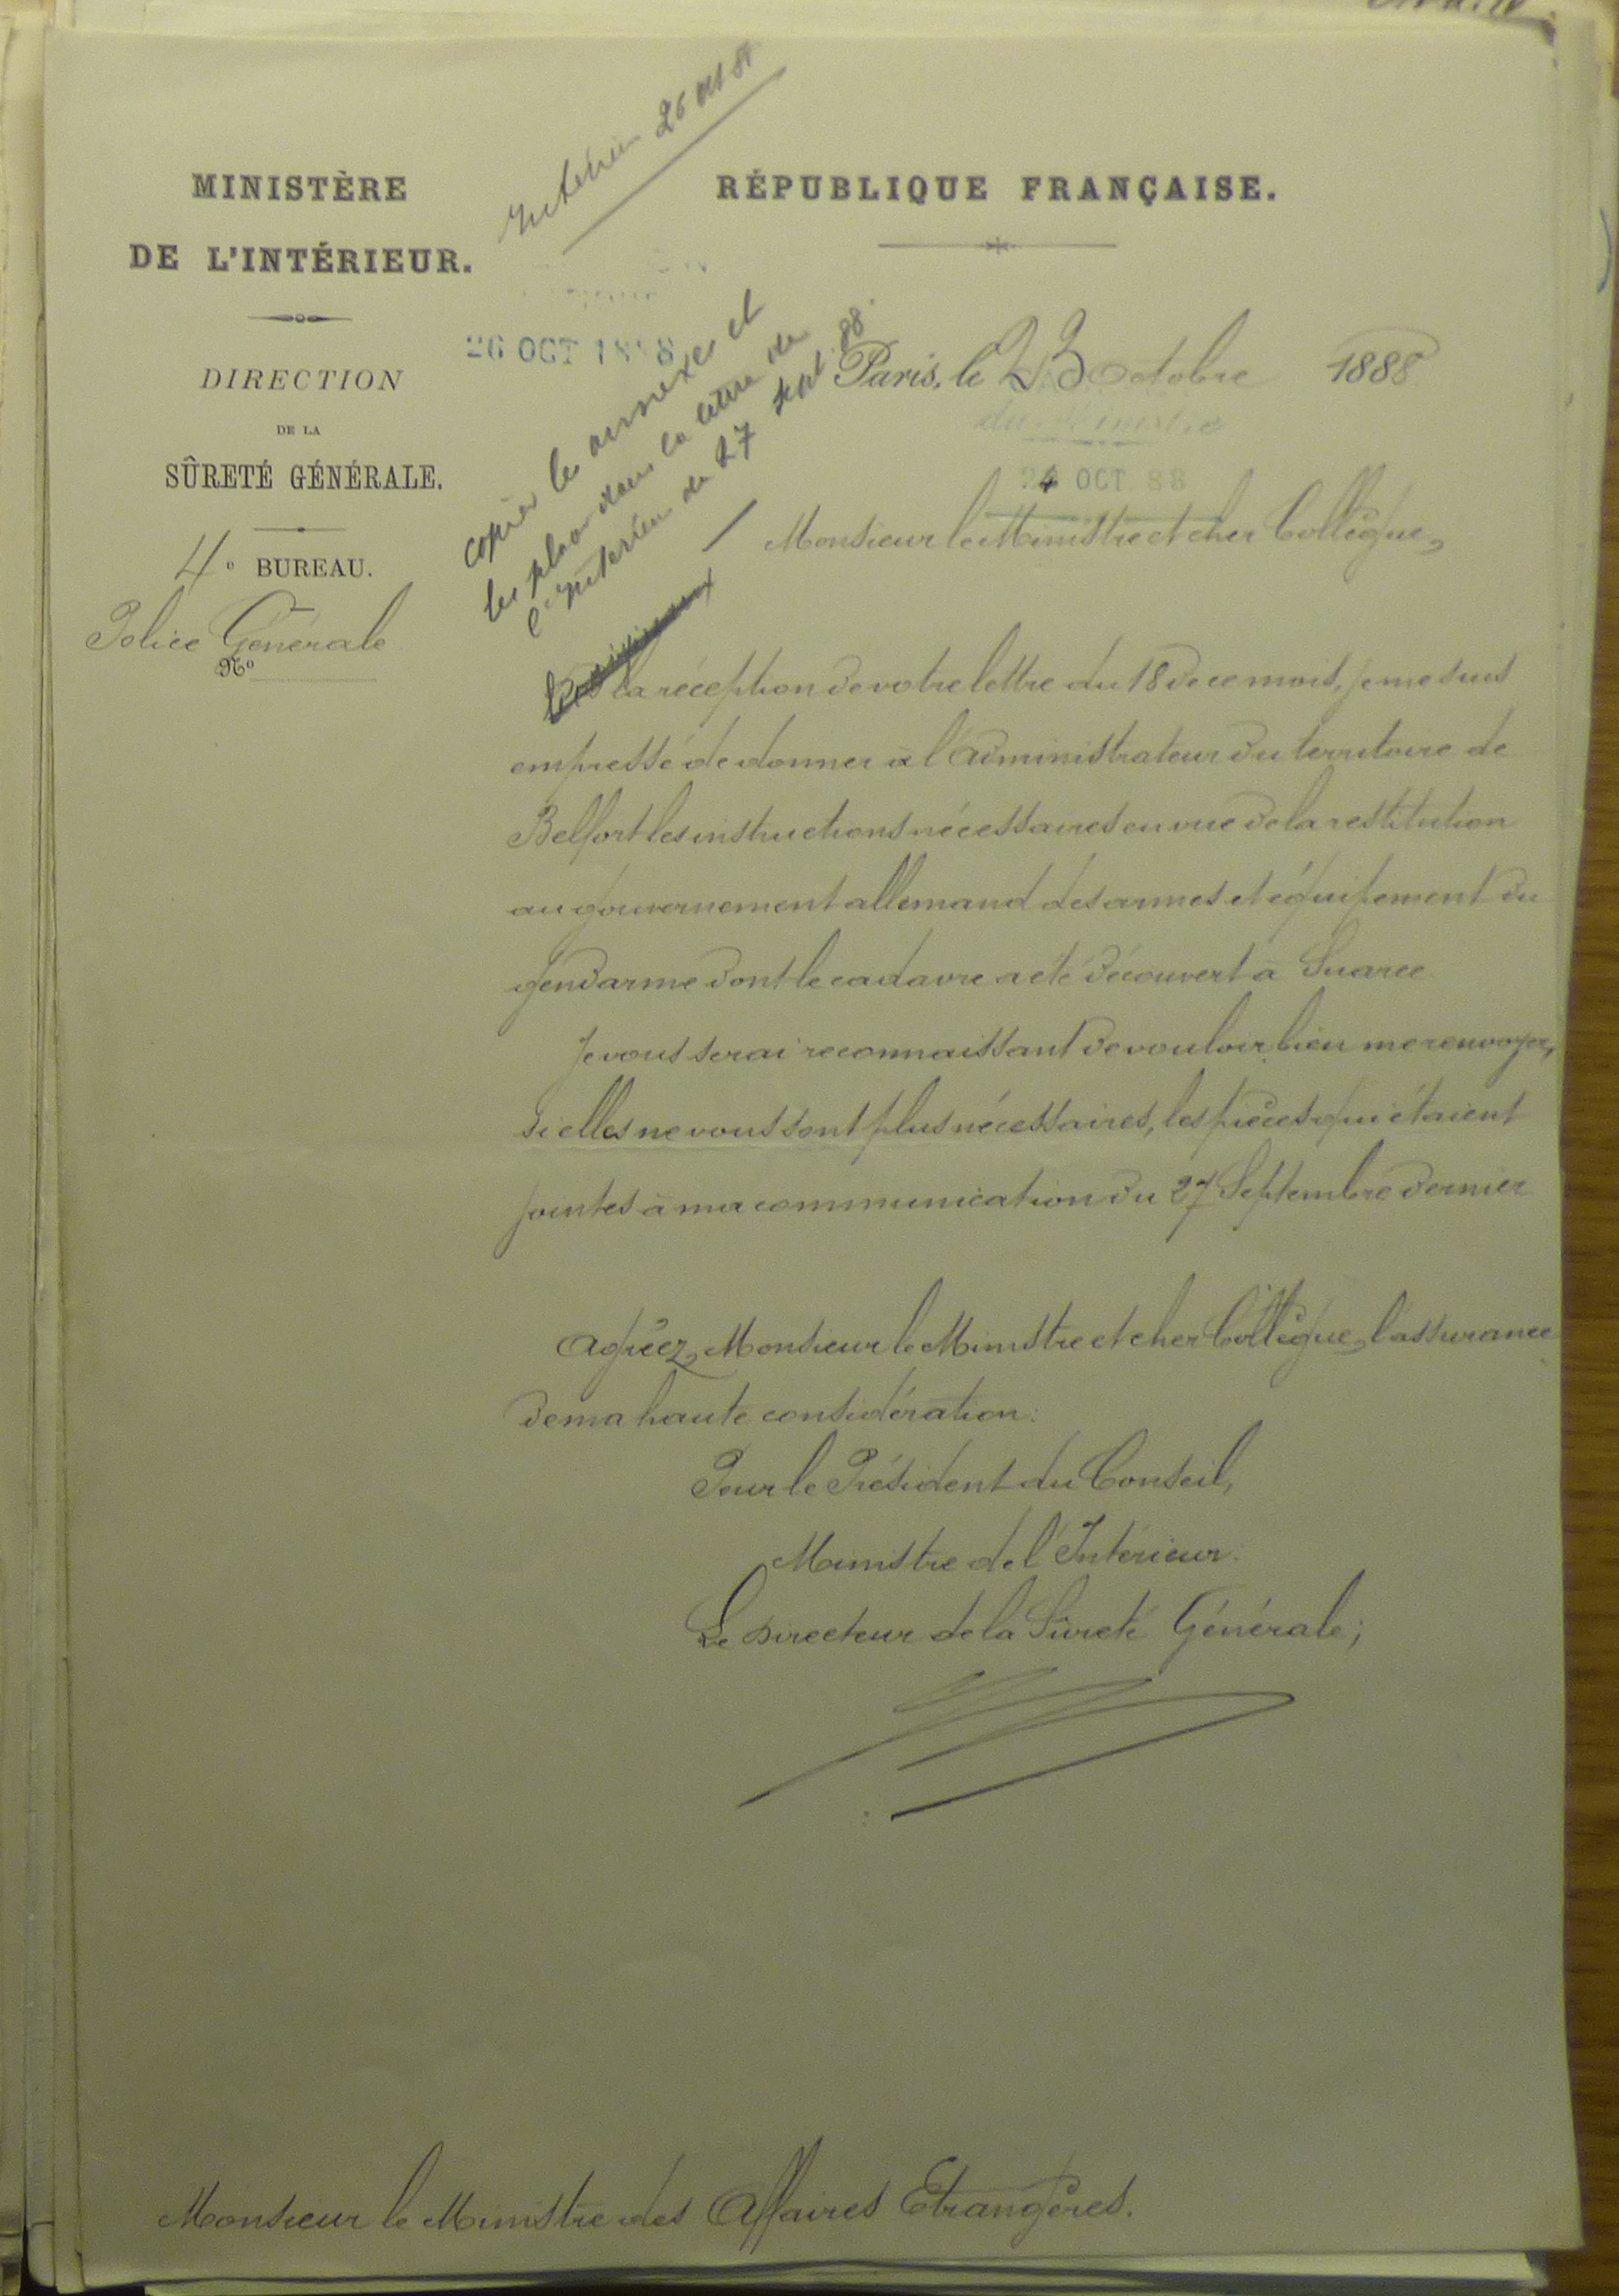 Intérieur 26 oct 88
MINISTÈRE
DE L'INTÉRIEUR.
DIRECTION
DE LA
SÛRETÉ GÉNÉRALE.
4e BUREAU.
Police Générale
No
RÉPUBLIQUE FRANÇAISE.
26 OCT 1888
copier les annexes et
les placer dans la lettre de
l'Intérieur du 27 sept 88
Paris, le 23 Octobre 1888
du Ministre
24 OCT 88
Monsieur le Ministre et cher Collègue,
Dès la réception de votre lettre du 18 de ce mois, je me suis
empressé de donner à l'Administrateur du territoire de
Belfort les instructions nécessaires en vue de la restitution
au gouvernement allemand des armes et équipement du
gendarme dont le cadavre a été découvert à Suarce
Je vous serai reconnaissant de vouloir bien me renvoyer,
si elles ne vous sont plus nécessaires, les pièces qui étaient
jointes à ma communication du 27 Septembre dernier
Agréez, Monsieur le Ministre et cher Collègue, l'assurance
de ma haute considération.
Pour le Président du Conseil,
Ministre de l'Intérieur.
Le Directeur de la Sûreté Générale;
Monsieur le Ministre des Affaires Etrangères.